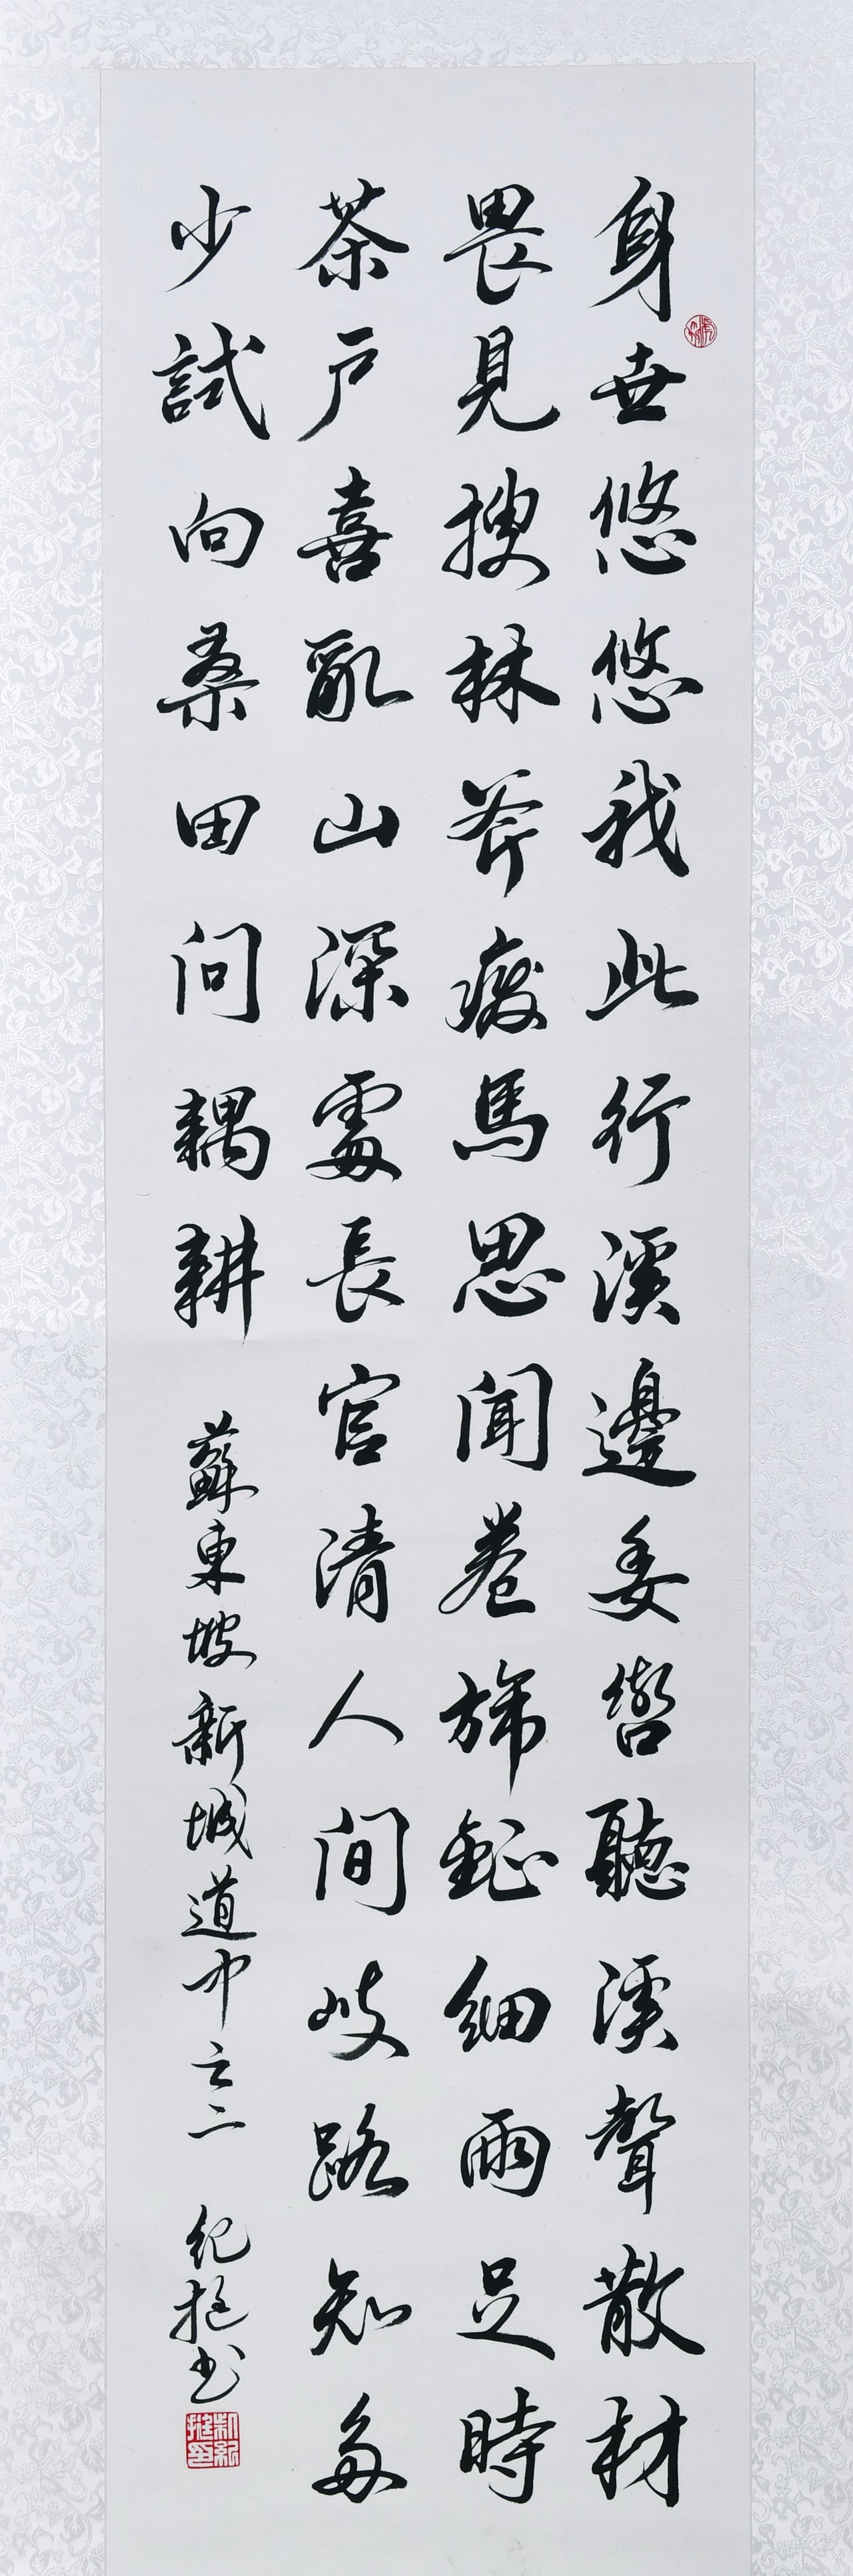 身世悠悠我此行溪邊委轡聽溪聲散材
畏見搜林斧疲馬思聞卷旆鉦細雨足時
茶戶喜亂山深處長官清人間岐路知多
少試向桑田問耦耕 蘇東坡新城道中之二 紀挺书